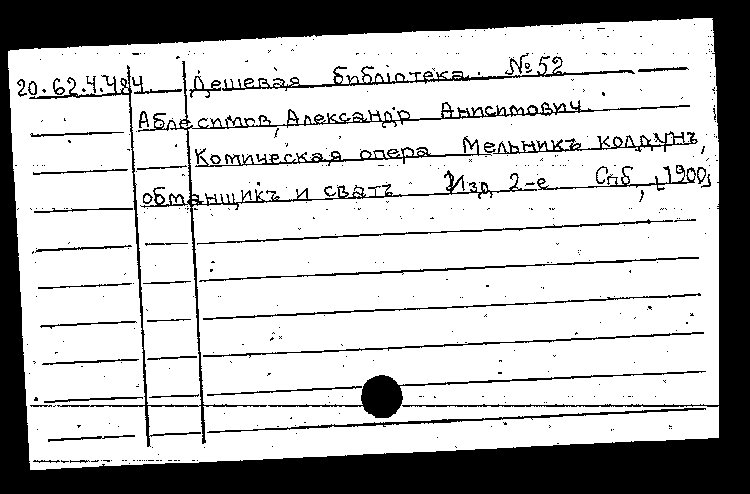 20.62.4.484 Дешевая библiотека. № 52
Аблесимов, Александр Анисимович.
Комическая опера Мельникъ колдунъ,
обманщикъ и сватъ. Изд. 2-е Спб, [1900]